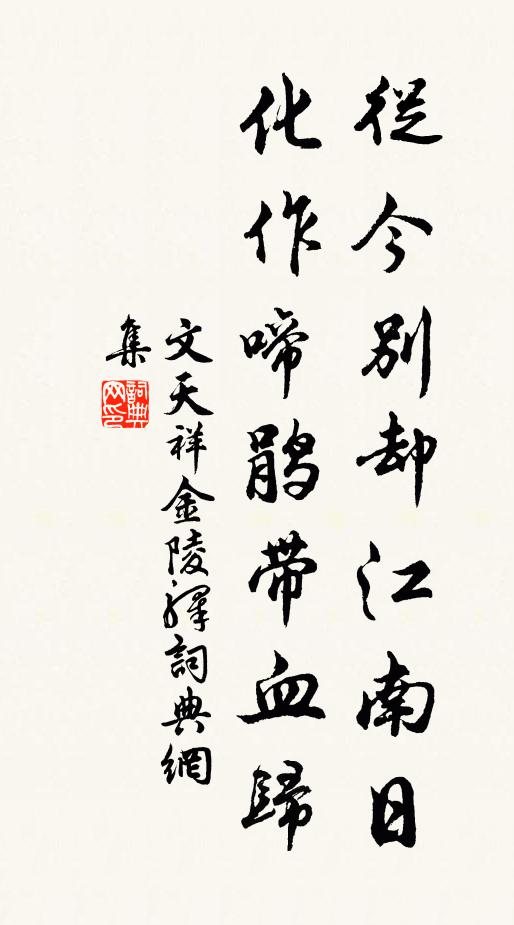 從今別却江南日
化作啼鹃帶血歸
文天祥金陵驛詞典網
集
詞典網印